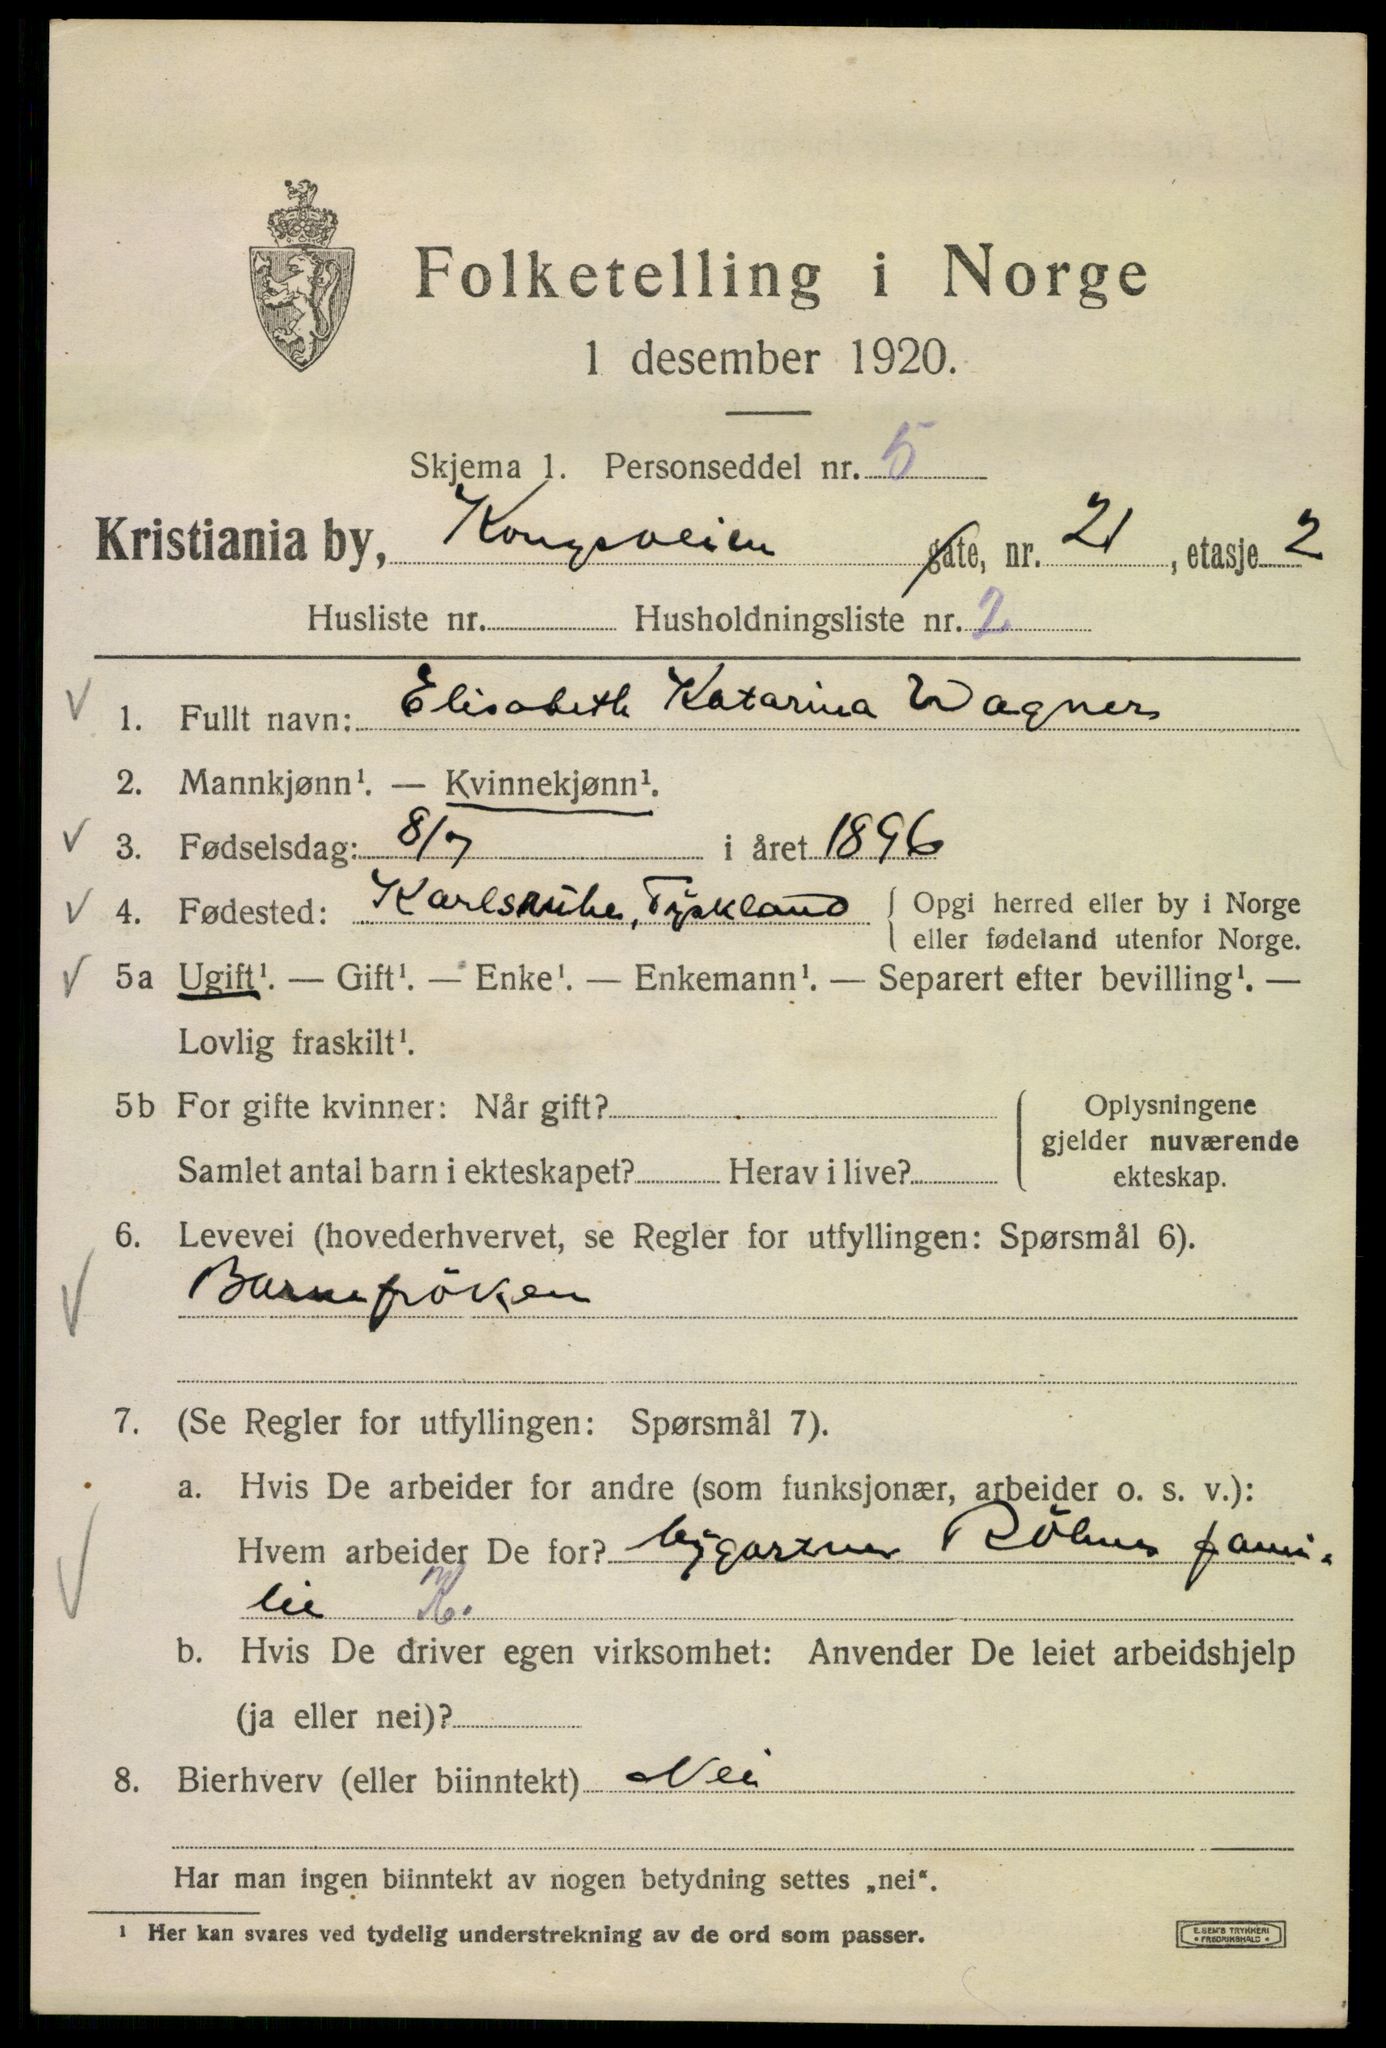 Folketelling i Norge
1 desember 1920.
Skjema 1. Personseddel nr. 5
Kristiania by, Kongsveien gate, nr. 21, etasje 2
Husliste nr. Husholdningsliste nr. 2
1. Fullt navn: Elisabeth Katarina Wagner
2. Mannkjønn¹. — Kvinnekjønn¹.
3. Fødselsdag: 8/7 i året 1896
4. Fødested: Karlsruhe, Tyskland { Opgi herred eller by i Norge
eller fødeland utenfor Norge.
5a Ugift¹. — Gift¹. — Enke¹. — Enkemann¹. — Separert efter bevilling¹. —
Lovlig fraskilt¹.
5b For gifte kvinner: Når gift? Oplysningene
gjelder nuværende
Samlet antal barn i ekteskapet? Herav i live? ekteskap.
6. Levevei (hovederhvervet, se Regler for utfyllingen: Spørsmål 6).
Barnefröken
7. (Se Regler for utfyllingen: Spørsmål 7).
a. Hvis De arbeider for andre (som funksjonær, arbeider o. s. v.):
Hvem arbeider De for? bygartner Röhnes fami-
lie
b. Hvis De driver egen virksomhet: Anvender De leiet arbeidshjelp
(ja eller nei)?
8. Bierhverv (eller biinntekt) Nei
Har man ingen biinntekt av nogen betydning settes „nei“.
¹ Her kan svares ved tydelig understrekning av de ord som passer.
E. SEM'S TRYKKERI
FREDRIKSHALD